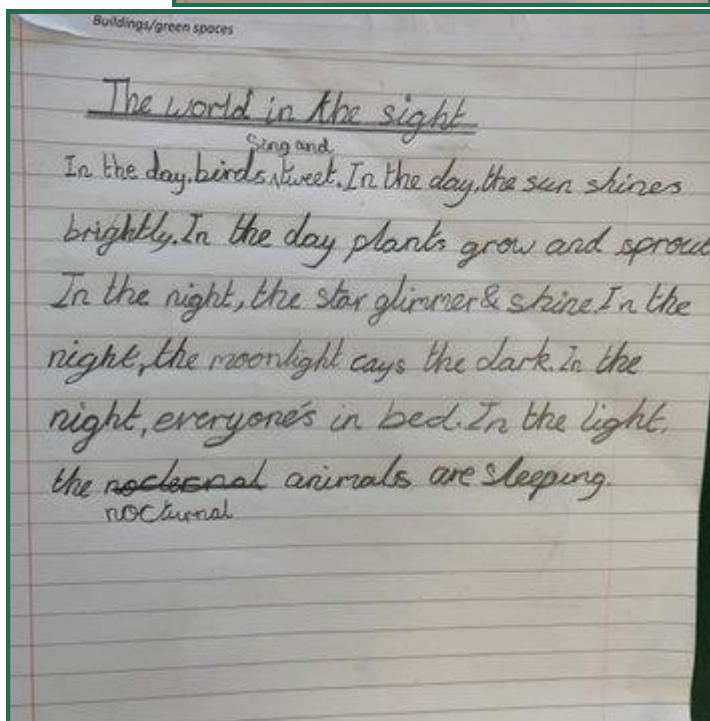 Buildings/green spaces
The world in the sight
Sing and
In the day, birds tweet. In the day, the sun shines
brightly. In the day plants grow and sprout
In the night, the star glimmer & shine. In the
night, the moonlight cays the dark. In the
night, everyone's in bed. In the light,
the nocternal animals are sleeping.
nocturnal